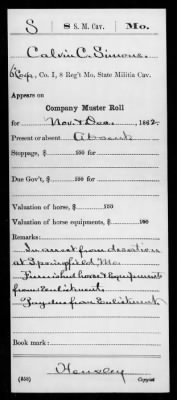 S 8 S.M. Cav. Mo.
Calvin C. Simons.
Co. I, 8 Reg't Mo. State Militia Cav.
Appears on
Company Muster Roll
for Nov & Dec., 1862.
Present or absent Absent
Stoppage, $ 100 for
Due Gov't, $ 100 for
Valuation of horse, $ 100
Valuation of horse equipments, $ 100
Remarks:
In arrest from desertion
at Springfield Mo.
Furnished horse & Equipments
from Enlistment
Pay due from Enlistment
Book mark:
Hensley
(858) Copyist.